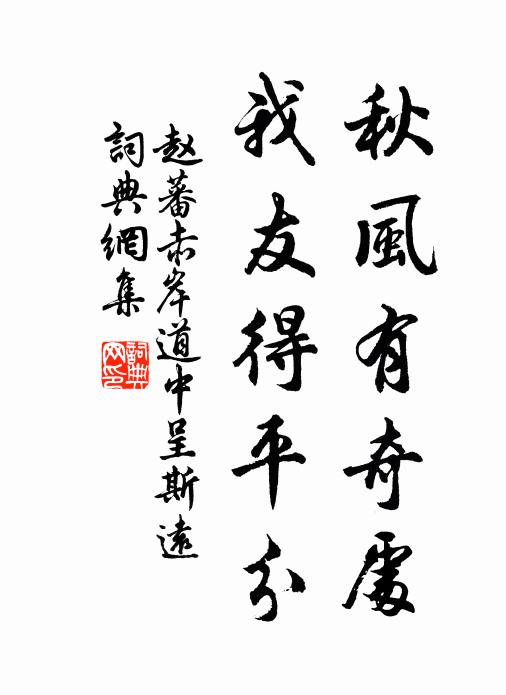 秋風有奇處
我友得平分
赵蕃赤岸道中呈斯遠
詞典網集
詞典網印